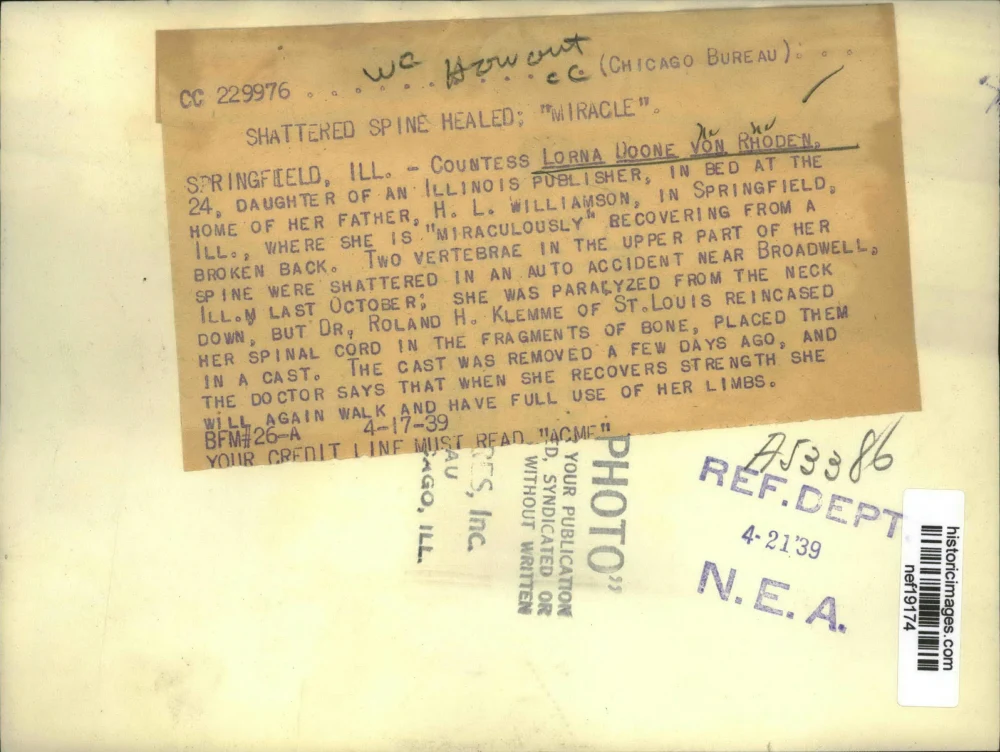 WC How out
CC
CC 229976 . . . . . . . . . . . (CHICAGO BUREAU). . .
SHATTERED SPINE HEALED; "MIRACLE".
SPRINGFIELD, ILL. - COUNTESS LORNA DOONE VON RHODEN,
24, DAUGHTER OF AN ILLINOIS PUBLISHER, IN BED AT THE
HOME OF HER FATHER, H. L. WILLIAMSON, IN SPRINGFIELD,
ILL., WHERE SHE IS "MIRACULOUSLY" RECOVERING FROM A
BROKEN BACK. TWO VERTEBRAE IN THE UPPER PART OF HER
SPINE WERE SHATTERED IN AN AUTO ACCIDENT NEAR BROADWELL,
ILL.M LAST OCTOBER; SHE WAS PARALYZED FROM THE NECK
DOWN, BUT DR, ROLAND H. KLEMME OF ST.LOUIS REINCASED
HER SPINAL CORD IN THE FRAGMENTS OF BONE, PLACED THEM
IN A CAST. THE CAST WAS REMOVED A FEW DAYS AGO, AND
THE DOCTOR SAYS THAT WHEN SHE RECOVERS STRENGTH SHE
WILL AGAIN WALK AND HAVE FULL USE OF HER LIMBS.
BFM#26-A 4-17-39
YOUR CREDIT LINE MUST READ "ACME"
PHOTO"
YOUR PUBLICATION
D, SYNDICATED OR
WITHOUT WRITTEN
ES, Inc.
AU
AGO, ILL.
A53386
REF. DEPT
4-21'39
N.E.A.
historicimages.com
nef19174